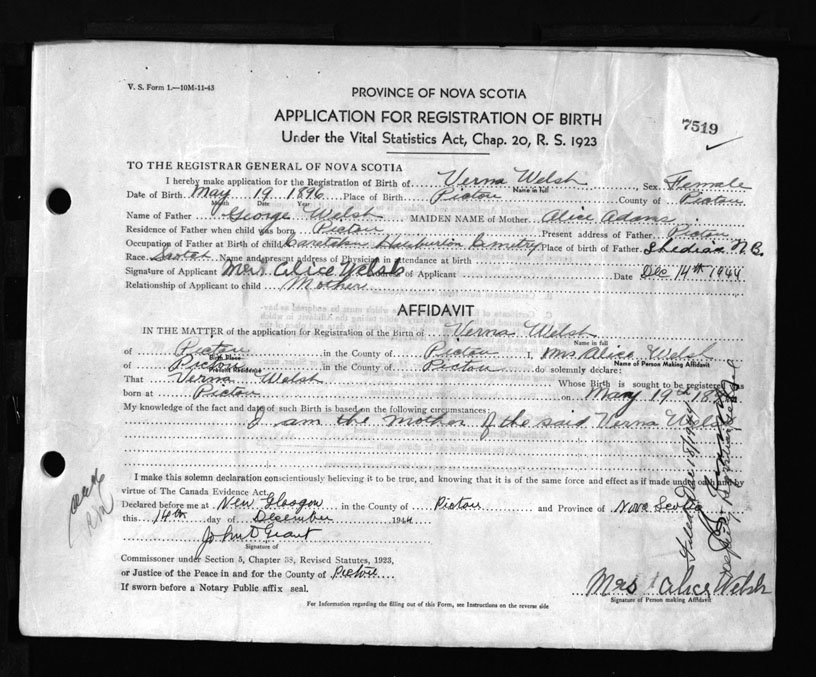 V. S. Form 1.—10M-11-43
PROVINCE OF NOVA SCOTIA
APPLICATION FOR REGISTRATION OF BIRTH
7519
Under the Vital Statistics Act, Chap. 20, R. S. 1923
TO THE REGISTRAR GENERAL OF NOVA SCOTIA
I hereby make application for the Registration of Birth of Verna Welsh Sex Female
Name in full
Date of Birth May 19 1896 Place of Birth Pictou County of Pictou
Month Date Year
Name of Father George Welsh MAIDEN NAME of Mother Alice Adams
Residence of Father when child was born Pictou Present address of Father Pictou
Occupation of Father at Birth of child Caretaker Haliburton Cemetry Place of birth of Father Shediac N.B.
Race Scotch Name and present address of Physician in attendance at birth
Signature of Applicant Mrs Alice Welsh Address of Applicant Date Dec 14th 1944
Relationship of Applicant to child Mother
AFFIDAVIT
IN THE MATTER of the application for Registration of the Birth of Verna Welsh
Name in full
of Pictou in the County of Pictou I, Mrs Alice Welsh
Birth Place Name of Person Making Affidavit
of Pictou in the County of Pictou do solemnly declare:
Present Residence
That Verna Welsh Whose Birth is sought to be registered was
born at Pictou on May 19th 189
My knowledge of the fact and date of such Birth is based on the following circumstances:
I am the mother of the said Verna Welsh
I make this solemn declaration conscientiously believing it to be true, and knowing that it is of the same force and effect as if made under oath and by
virtue of The Canada Evidence Act.
Declared before me at New Glasgow in the County of Pictou and Province of Nova Scotia
this 14th day of December 1944
John D Grant
Signature of
Commissioner under Section 5, Chapter 38, Revised Statutes, 1923,
or Justice of the Peace in and for the County of Pictou
If sworn before a Notary Public affix seal.
Mrs Alice Welsh
Signature of Person making Affidavit
For Information regarding the filling out of this Form, see Instructions on the reverse side